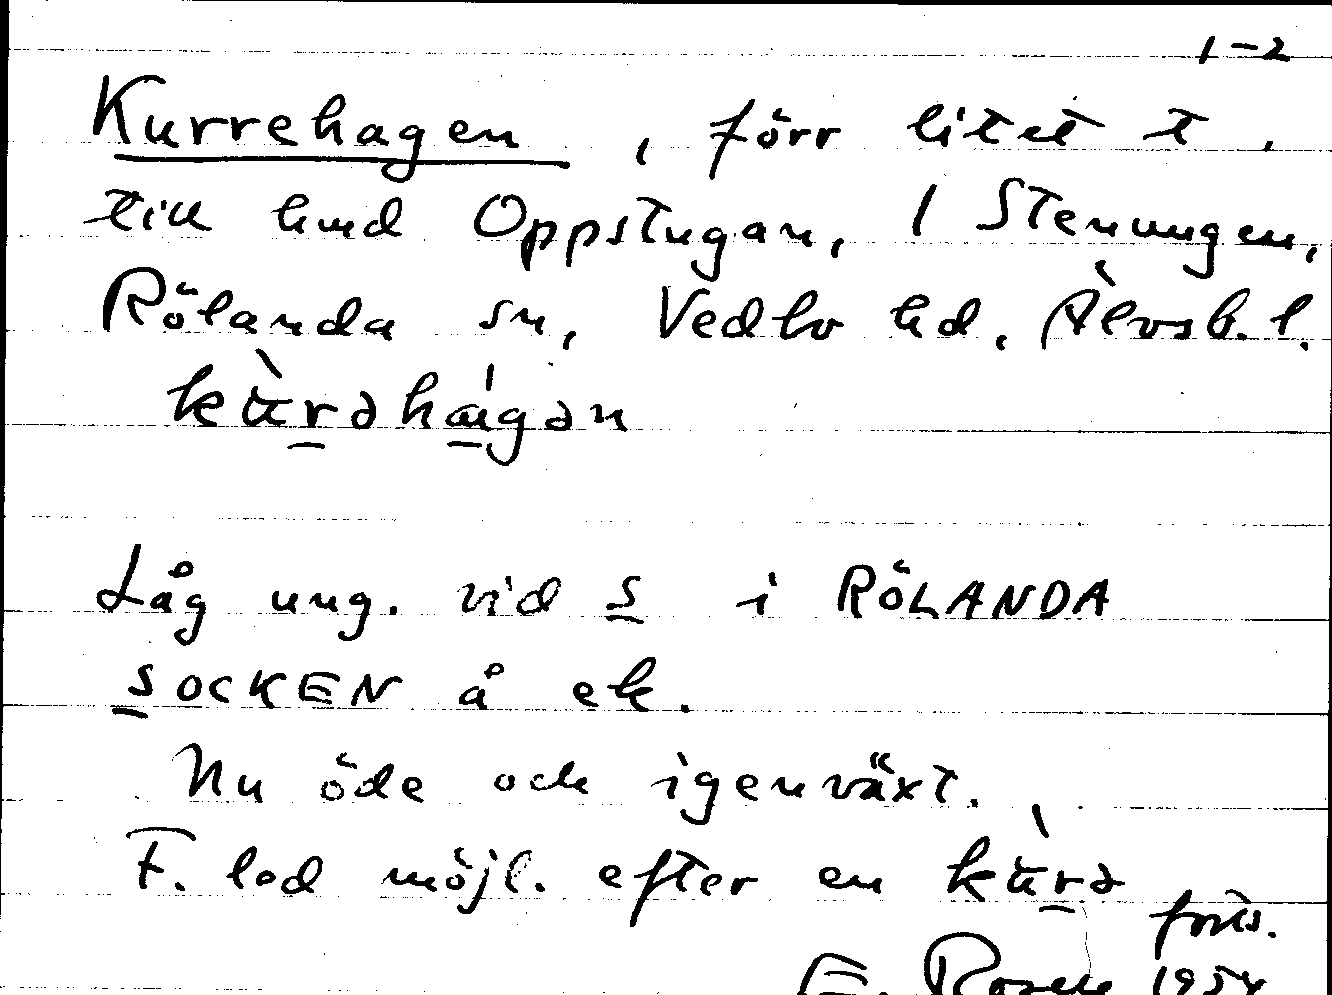 1-2
Kurrehagen, förr litet t.
till hmd Oppstugan, 1 Stenungen,
Rölanda sn, Vedbo hd. Älvsb. l.
kùrəhágən
Låg ung. vid S i RÖLANDA
SOCKEN å ek.
Nu öde och igenväxt.
F. lad möjl. efter en kùrə
forts.
E. Rosell 1954